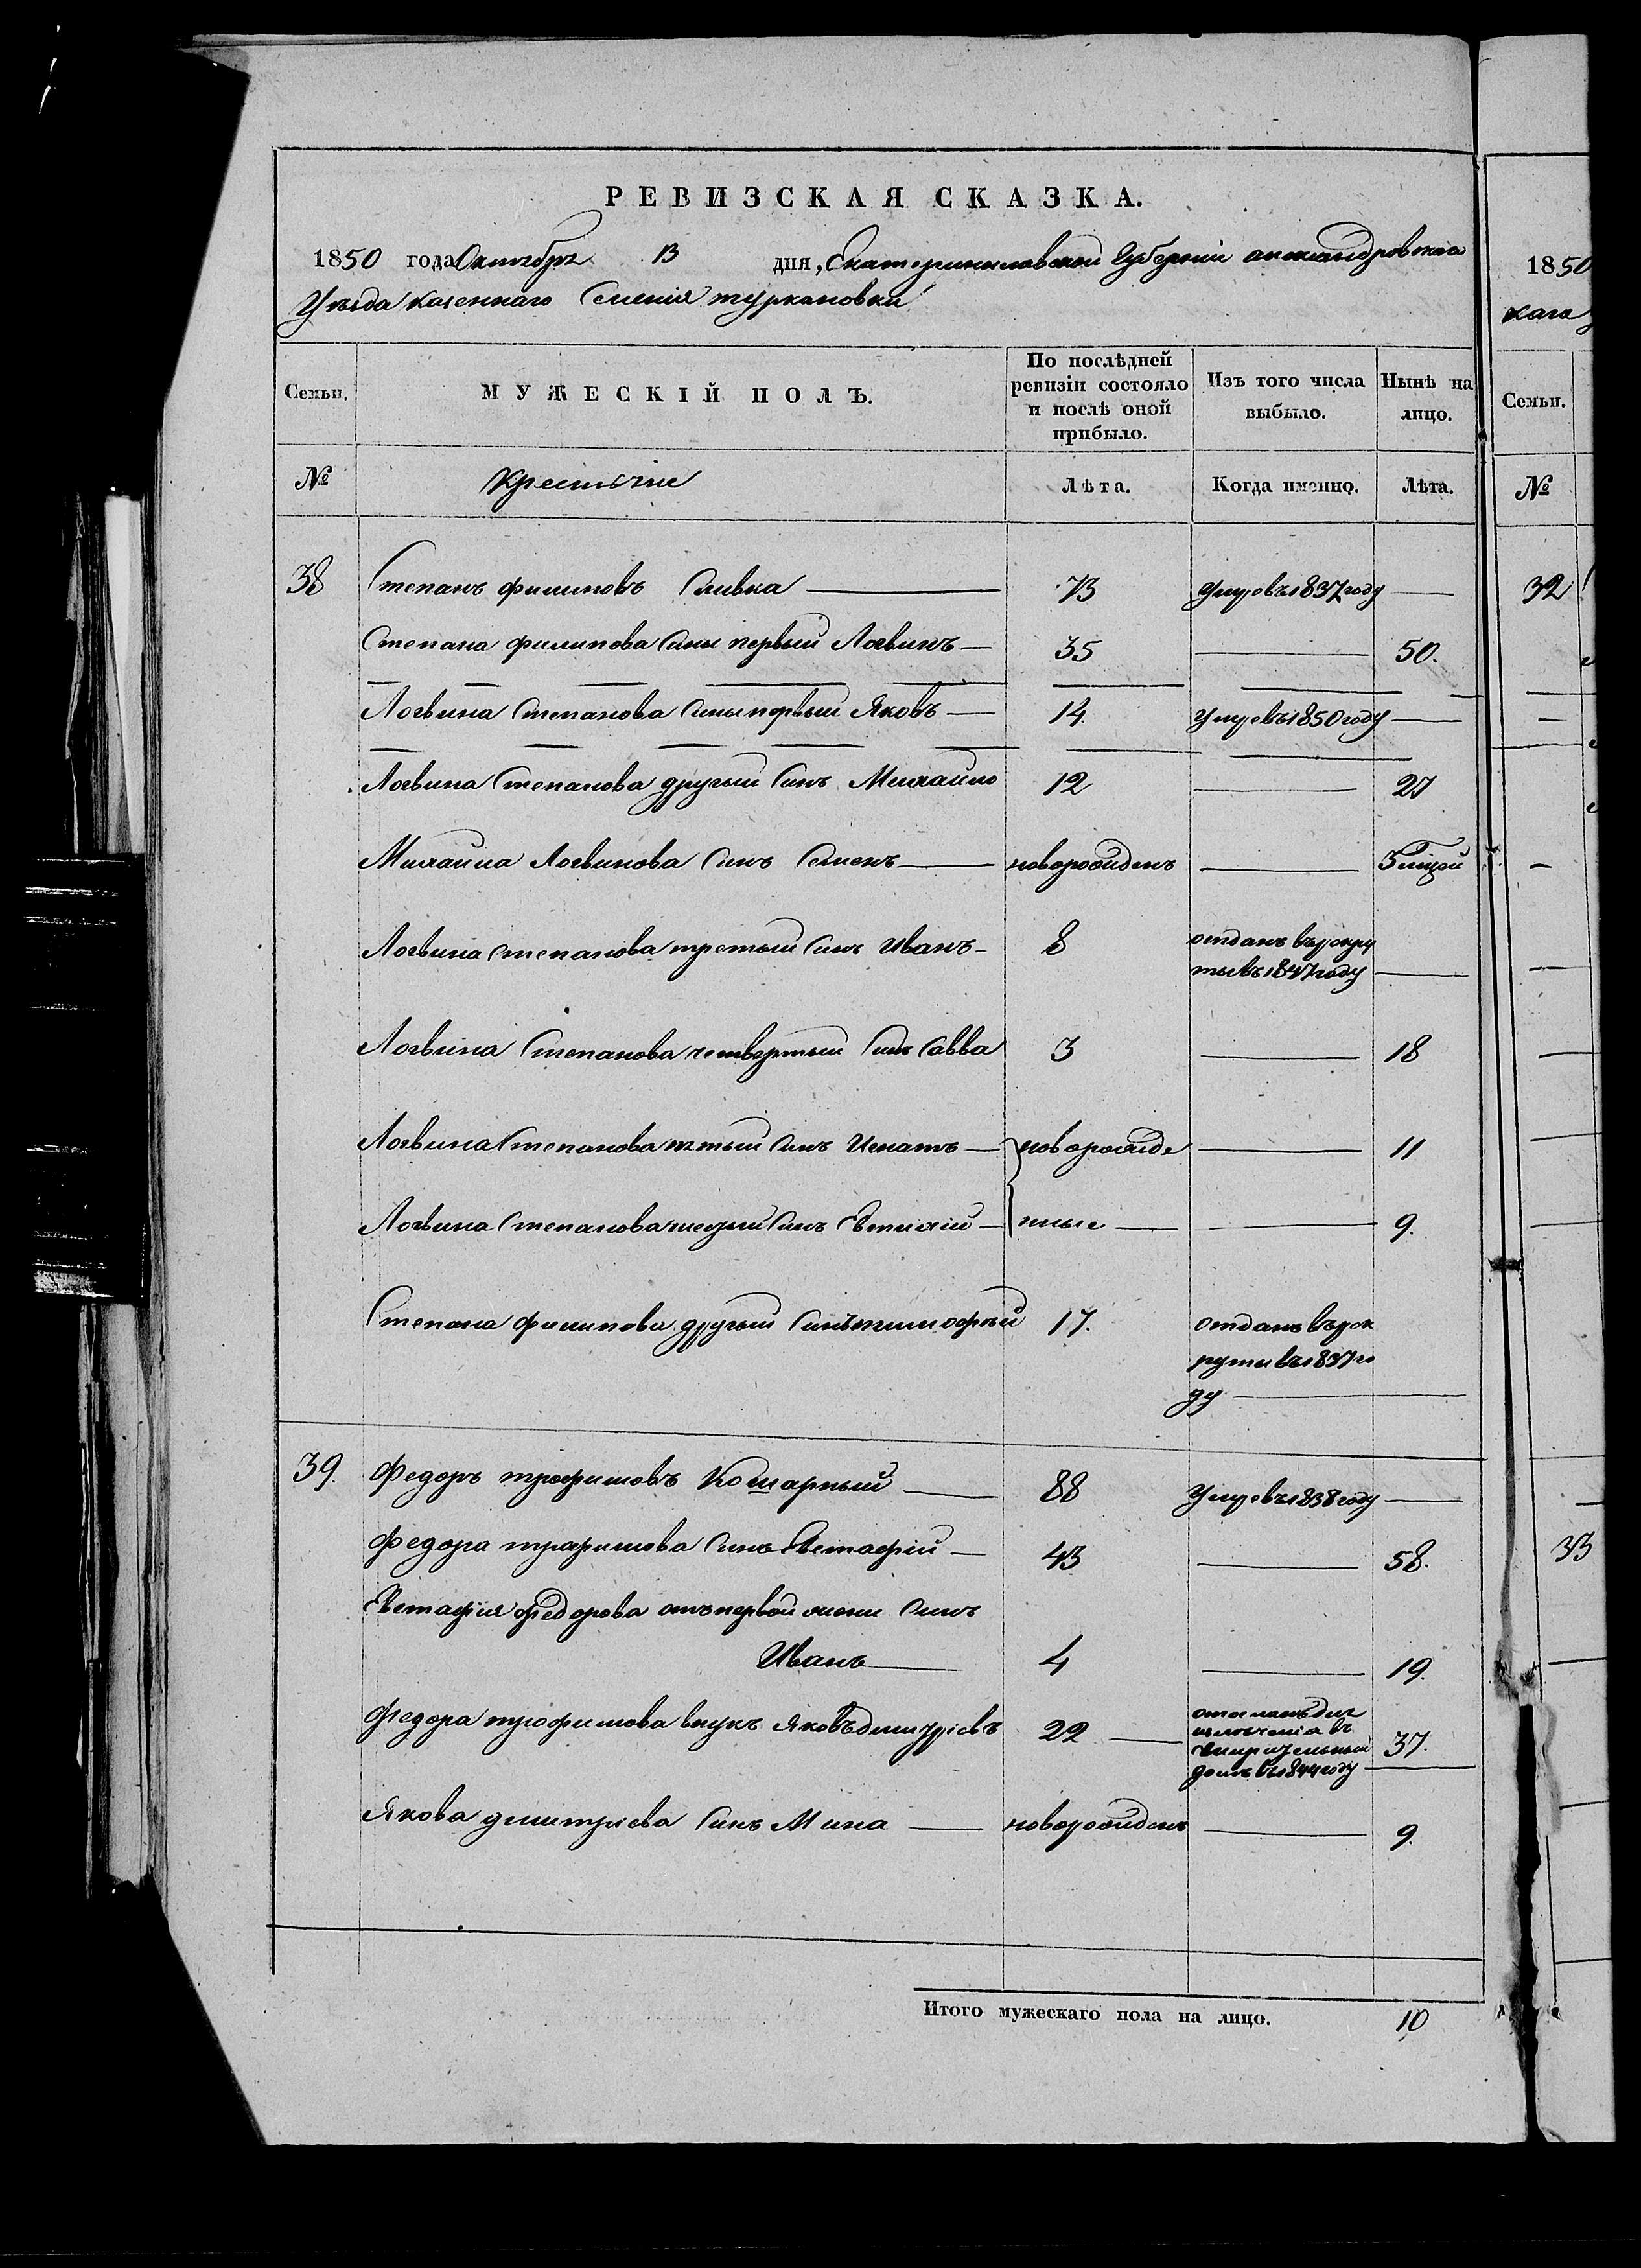 РЕВИЗСКАЯ СКАЗКА.
1850 года Октября 13 дня, Екатеринославской Губернии александровскаго
Уезда казеннаго Селения туркановки
Семьи. МУЖЕСКІЙ ПОЛЪ. По послѣдней ревизіи состояло и послѣ оной прибыло. Изъ того числа выбыло. Нынѣ на лицо.
№ Крестьяне Лѣта. Когда именно. Лѣта.
38 Степанъ филиповъ Сливка 73 Умре въ 1837 году
Степана филипова Сины первый Логвинъ 35 50.
Логвина Степанова Сины первый Яковъ 14. Умре въ 1850 году
Логвина Степанова другый Синъ Михайло 12 27
Михаила Логвинова Синъ Семенъ новорожденъ
Логвина степанова третый Синъ Иванъ 8 отданъ въ рекру
ты въ 1847 году
Логвина Степанова четвертый Синъ Савва 3 18
Логвина Степанова пятый Синъ Игнатъ новорожде 11
Логвина Степанова шестый Синъ Евтихій нные 9.
Степана филипова другый Синъ тимофѣй 17. отданъ въ рек
руты въ 1837 го
ду
39. Федоръ трофимовъ Кошарный 88 Умре въ 1838 году
Федора трофимова Синъ Евстафій 43 58.
Евстафия федорова отъ первой жени Синъ
Иванъ 4 19.
Федора трофимова внукъ Яковъ дмитріевъ 22 отосланъ для
излечения въ
смирительный
домъ въ 1844 году 37.
Якова дмитриева Синъ Мина новорожденъ 9.
Итого мужескаго пола на лицо. 10
1850
каго
Семьи.
№
32
33